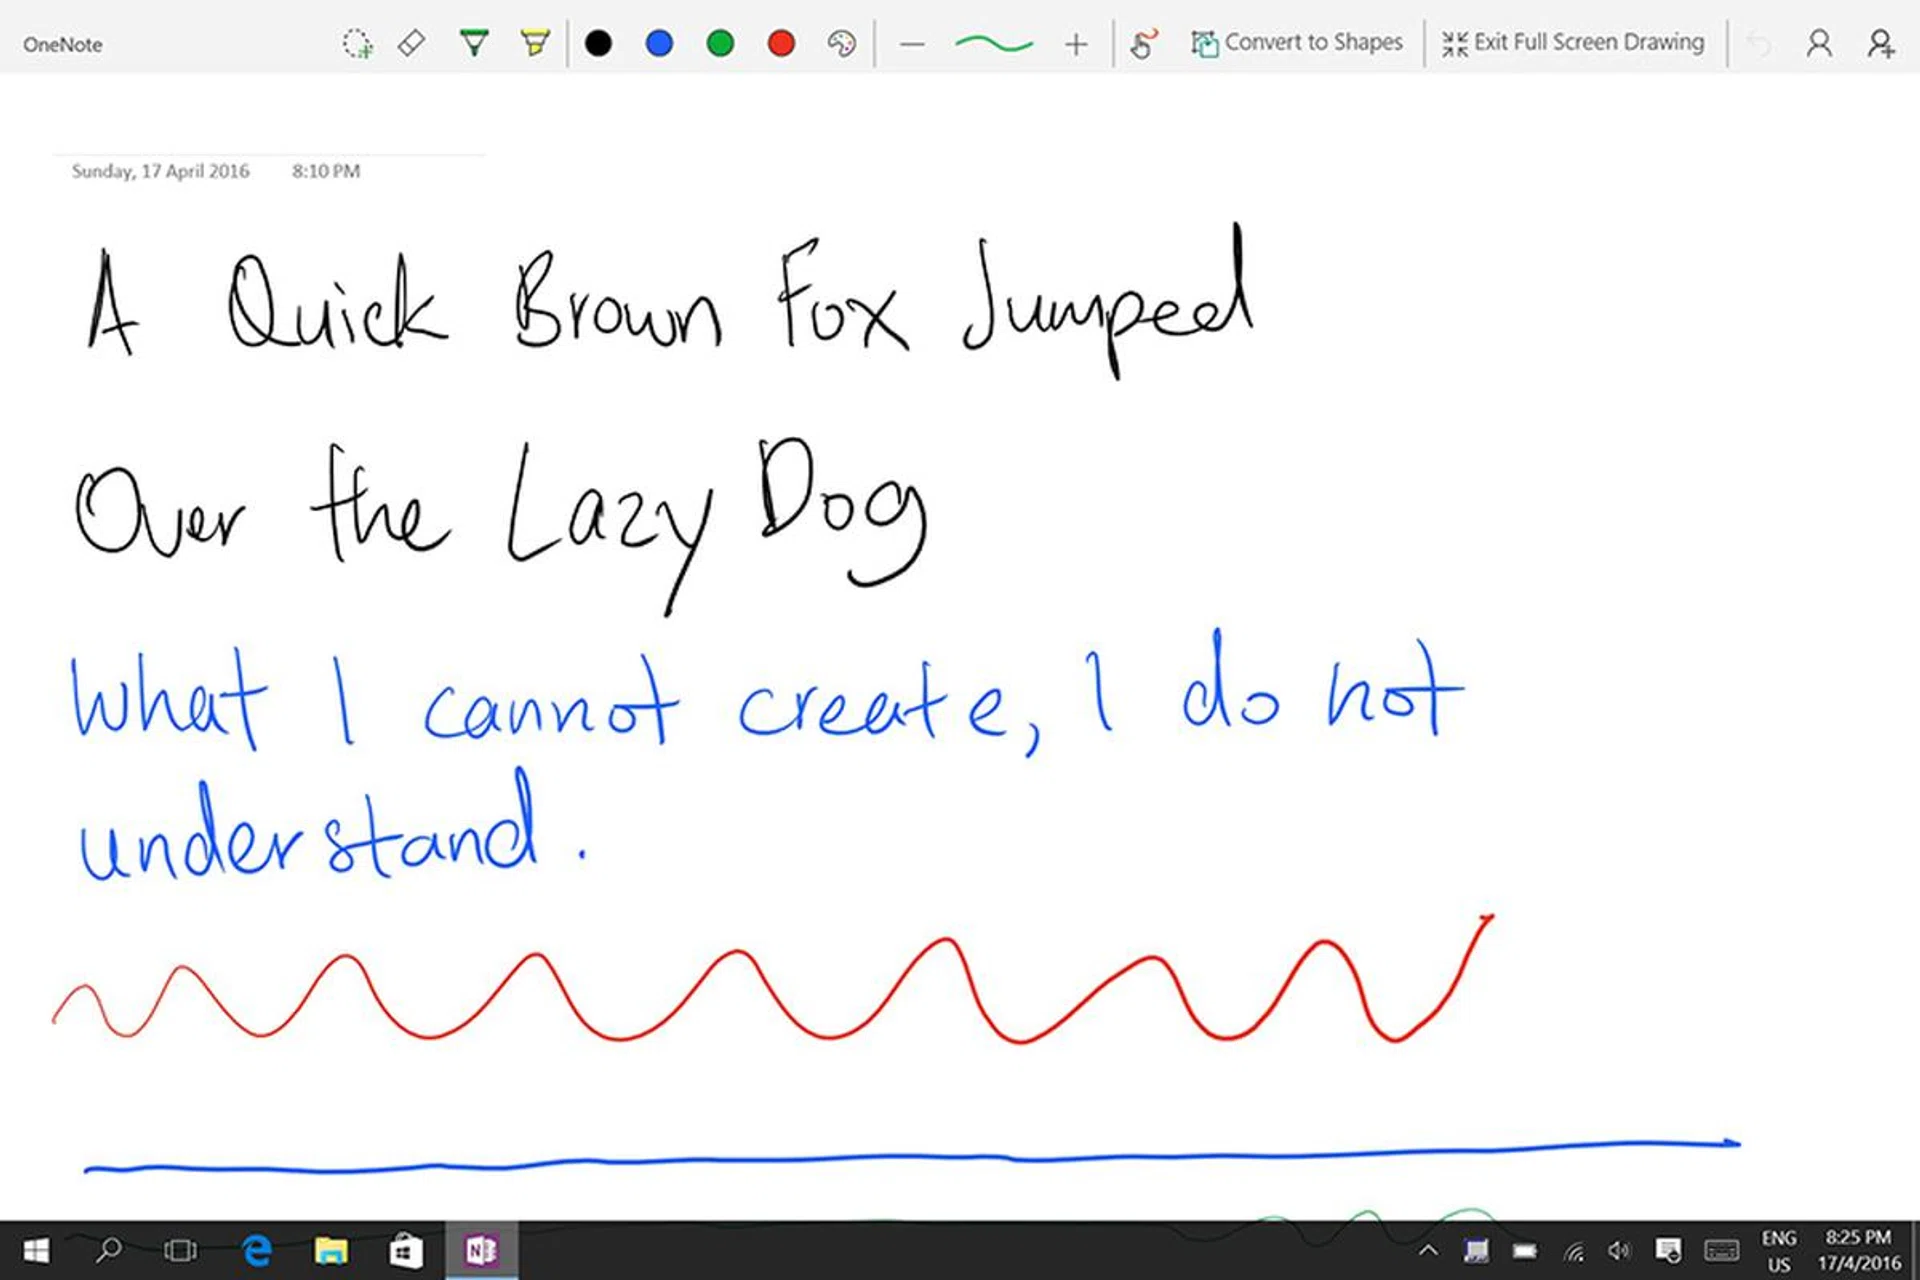 OneNote
Convert to Shapes
Exit Full Screen Drawing
Sunday, 17 April 2016 8:10 PM
A Quick Brown Fox Jumped
Over the Lazy Dog
What I cannot create, I do not
understand.
ENG 8:25 PM
US 17/4/2016